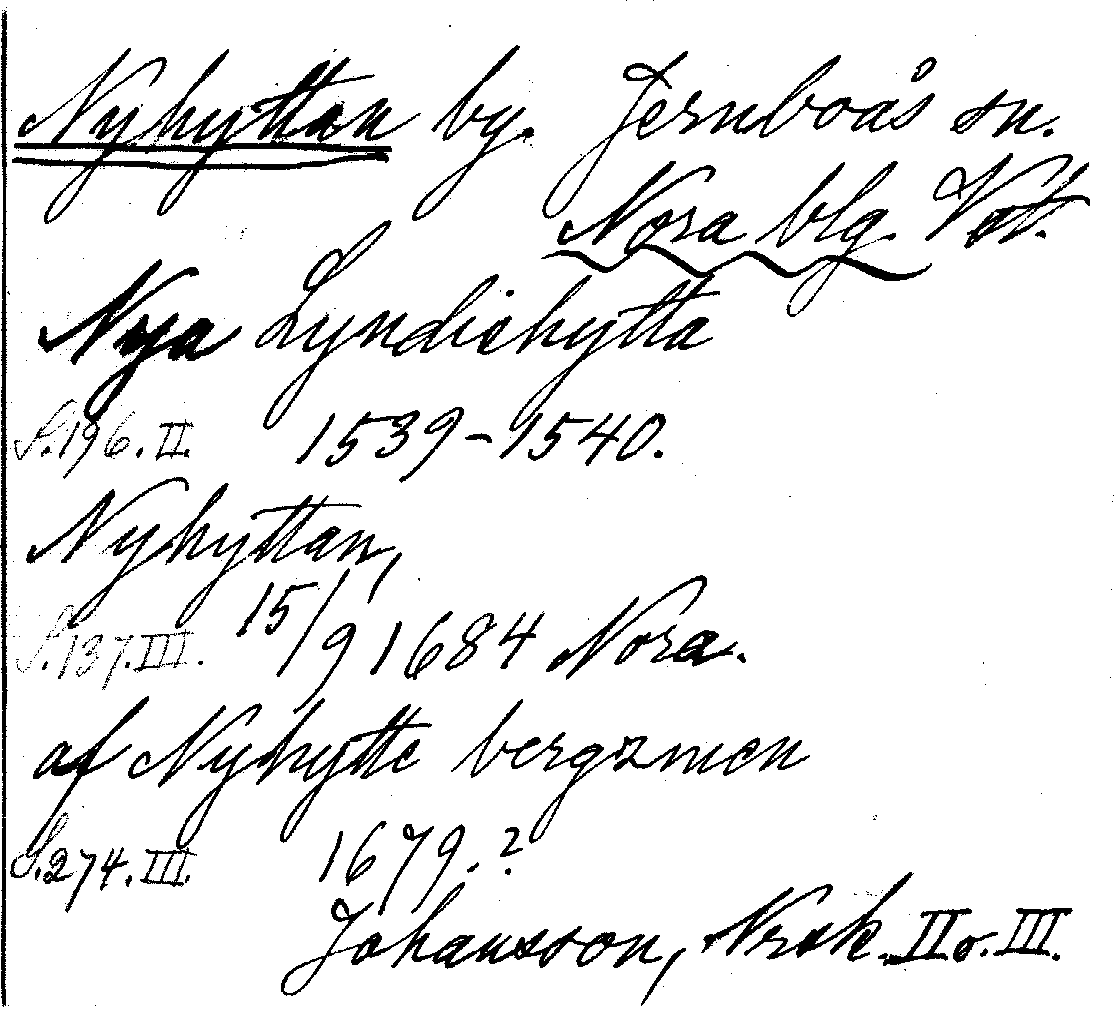 Nyhyttan by. Jernboås sn.
Nora blg. Vstt.
Nya Lyndichytta
S. 196. II. 1539-1540.
Nyhyttan,
S. 137. III. 15/9 1684 Nora.
af Nyhytte bergzmen
S. 274. III. 1679.?
Johansson, Nrsk. II o. III.